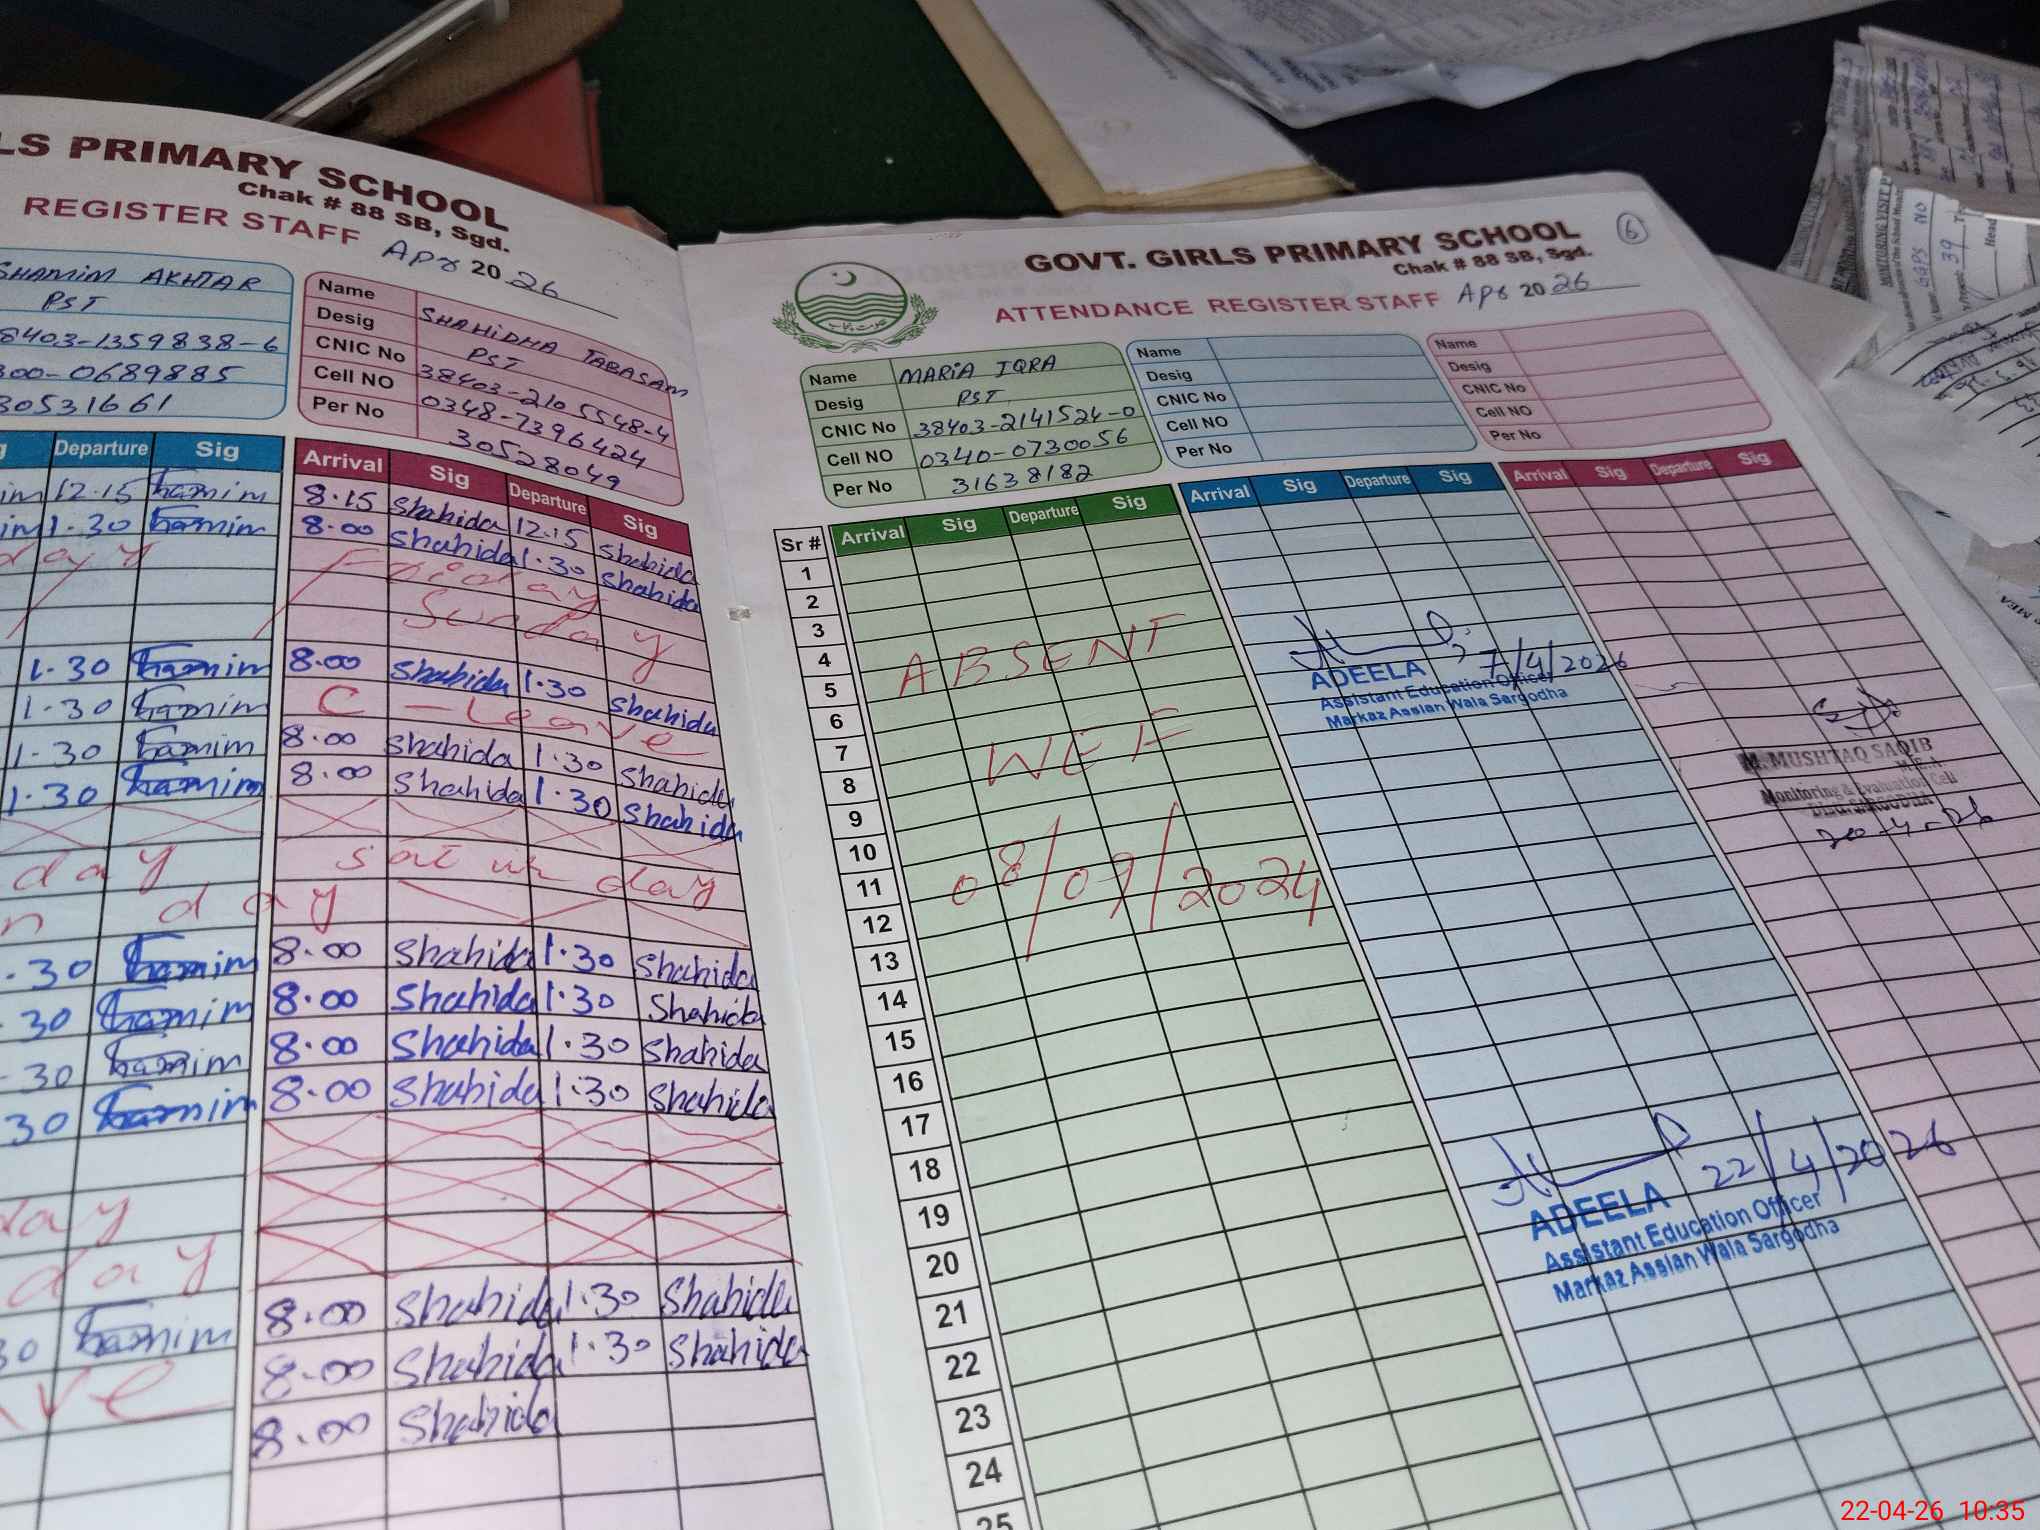 LS PRIMARY SCHOOL
Chak # 88 SB, Sgd.
REGISTER STAFF Apr 2026
SHAMIM AKHTAR
PST
8403-1359838-6
300-0689885
30531661
Name SHAHIDHA TABASAM
Desig PST
CNIC No 38403-2105548-4
Cell NO 0348-7396424
Per No 30528049
Departure Sig
12.15
1.30
day
1.30
1.30
1.30
1.30
day
n day
.30
30
30
30
day
day
30
ve
Arrival Sig Departure Sig
8.15 Shahida 12.15 Shahida
8.00 Shahida 1.30 Shahida
Friday
Sunday
8.00 Shahida 1.30 Shahida
C - Leave
8.00 Shahida 1.30 Shahida
8.00 Shahida 1.30 Shahida
8.00 Shahida 1.30 Shahida
8.00 Shahida 1.30 Shahida
8.00 Shahida 1.30 Shahida
8.00 Shahida 1.30 Shahida
8.00 Shahida 1.30 Shahida
8.00 Shahida 1.30 Shahida
8.00 Shahida
6
GOVT. GIRLS PRIMARY SCHOOL
Chak # 88 SB, Sgd.
ATTENDANCE REGISTER STAFF Apr 2026
Name MARIA IQRA
Desig PST
CNIC No 38403-2141524-0
Cell NO 0340-0730056
Per No 31638182
Name
Desig
CNIC No
Cell NO
Per No
Name
Desig
CNIC No
Cell NO
Per No
Sr # Arrival Sig Departure Sig
Arrival Sig Departure Sig
Arrival Sig Departure Sig
1
2
3
4
5
6
7
8
9
10
11
12
13
14
15
16
17
18
19
20
21
22
23
24
25
ABSENT
WEF
08/09/2024
7/4/2026
ADEELA
Assistant Education Officer
Markaz Assian Wala Sargodha
M. MUSHTAQ SAQIB
M.E.A.
Monitoring & Evaluation Cell
Distt. SARGODHA
20-4-26
22/4/2026
ADEELA
Assistant Education Officer
Markaz Assian Wala Sargodha
22-04-26 10:35